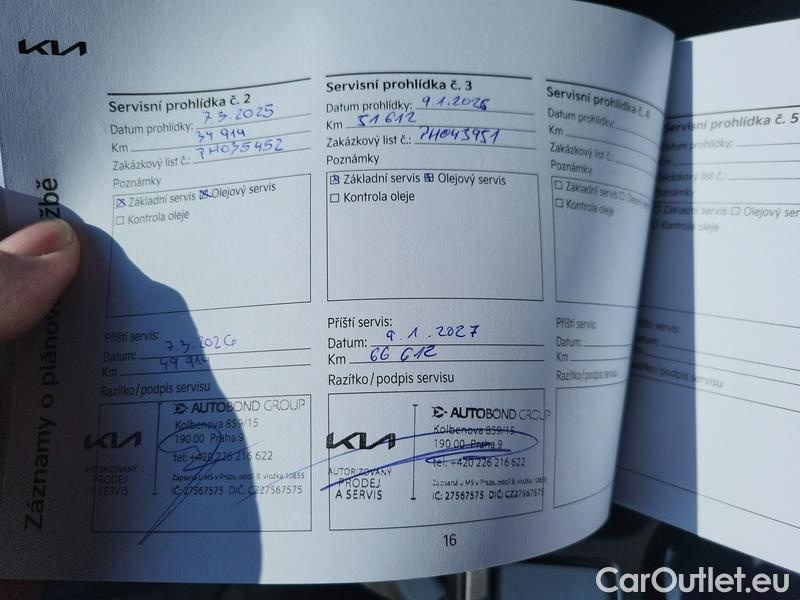 KIA
Záznamy o plánova
žbě
Servisní prohlídka č. 2
Datum prohlídky: 7 3. 2025
Km 34 914
Zakázkový list č.: PH035452
Poznámky
Základní servis Olejový servis
Kontrola oleje
Příští servis:
Datum: 7.3.2026
Km 49 914
Razítko/podpis servisu
KIA
AUTORIZOVANÝ
PRODEJ
A SERVIS
AUTOBOND GROUP
Kolbenova 859/15
190 00 Praha 9
tel: +420 226 216 622
Zapsaná u MS v Praze, oddíl B, vložka 10855
IČ: 27567575 DIČ: CZ27567575
Servisní prohlídka č. 3
Datum prohlídky: 9.1.2026
Km 51 612
Zakázkový list č.: PH043951
Poznámky
Základní servis Olejový servis
Kontrola oleje
Příští servis:
Datum: 9.1.2027
Km 66 612
Razítko/podpis servisu
KIA
AUTORIZOVANÝ
PRODEJ
A SERVIS
AUTOBOND GROUP
Kolbenova 859/15
190 00 Praha 9
tel: +420 226 216 622
Zapsaná u MS v Praze, oddíl B, vložka 10855
IČ: 27567575 DIČ: CZ27567575
Servisní prohlídka č. 4
Datum prohlídky:
Km
Zakázkový list č.:
Poznámky
Základní servis Olejový
Kontrola oleje
Příští servis:
Datum:
Km
Razítko/podpis servisu
Servisní prohlídka č. 5
Datum prohlídky:
Km
list č.:
Základní servis Olejový ser
oleje
servis:
servisu
16
CarOutlet.eu